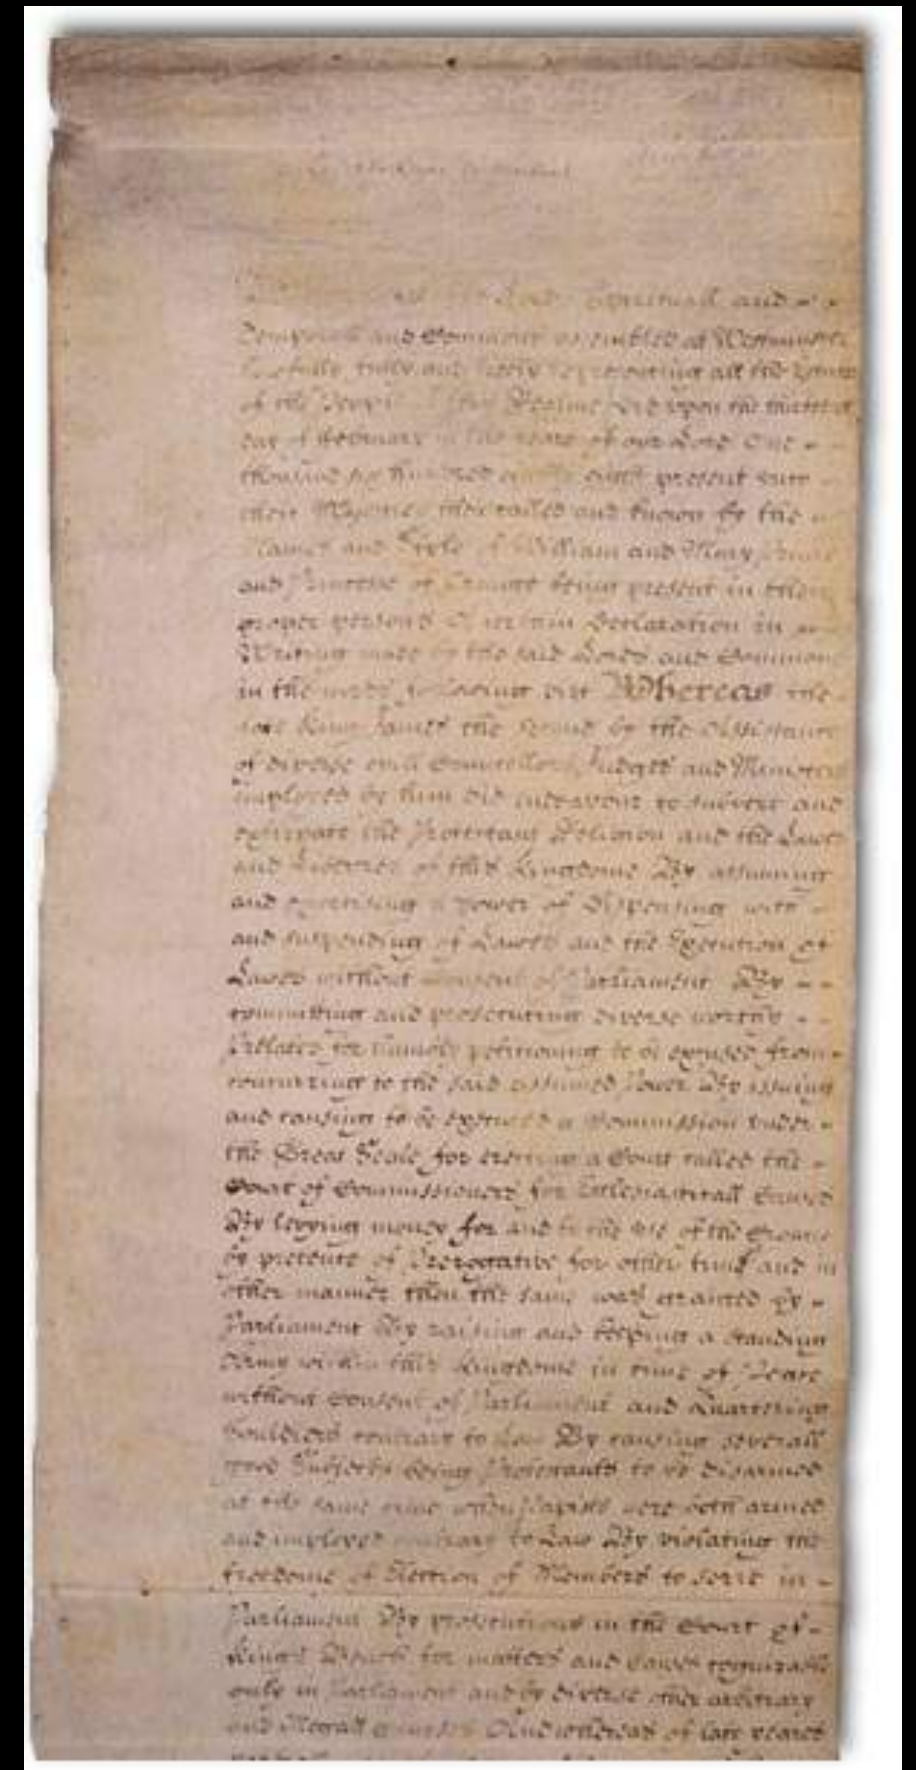 Lords Spirituall and
Temporall and Commons assembled at Westminster
lawfully fully and freely representing all the Estates
of the People of this Realme did upon the thirteenth
day of February in the yeare of our Lord One
thousand six hundred eighty eight present unto
their Majesties then called and knowne by the
Names and Stile of William and Mary Prince
and Princesse of Orange being present in their
proper persons A certain Declaration in
Writing made by the said Lords and Commons
in the words following viz Whereas the
late King James the Second by the Assistance
of diverse evill Councellors Judges and Ministers
imployed by him did endeavour to subvert and
extirpate the Protestant Religion and the Lawes
and Liberties of this Kingdome By assuming
and exercising a power of Dispensing with
and suspending of Lawes and the Execution of
Lawes without Consent of Parliament By
committing and prosecuting diverse worthy
Prelates for humbly petitioning to be excused from
concurring to the said assumed Power By issuing
and causing to be executed a Commission under
the Great Seale for erecting a Court called the
Court of Commissioners for Ecclesiasticall Causes
By levying money for and to the use of the Crowne
by pretence of Prerogative for other time and in
other manner then the same was granted by
Parliament By raising and keeping a standing
Army within this Kingdome in time of Peace
without Consent of Parliament and Quartering
Souldiers contrary to Law By causing severall
good Subjects being Protestants to be disarmed
at the same time when Papists were both armed
and imployed contrary to Law By violating the
freedome of Election of Members to serve in
Parliament By prosecutions in the Court of
Kings Bench for matters and causes cognizable
only in Parliament and by diverse other arbitrary
and illegall courses And whereas of late yeares